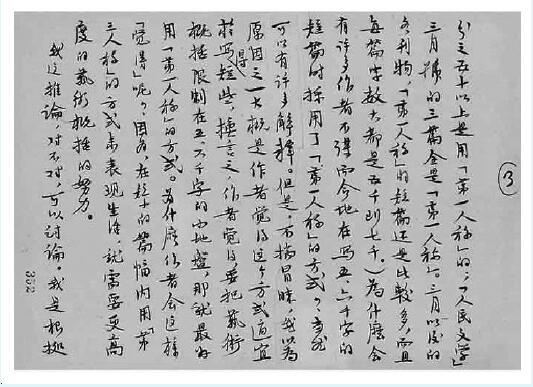 ③
分之五十以上是用「第一人称」的，「人民文学」
三月号的三篇全是「第一人称」。三月以后的
各刊物「第一人称」的短篇还是比較多，而且
每篇字数大都是五千到七千。）为什麽会
有许多作者不谋而合地在写五、六千字的
短篇时採用了「第一人称」的方式？当然
可以有许多解释。但是，不揣冒昧，我以为
原因之一大概是作者觉得这个方式適宜
於写得短些，換言之作者觉得要把藝術
概括限制在五、六千字的小地盤，那就最好
用「第一人称」的方式。为什麽作者会这样
「觉得」呢？因为，在較小的篇幅内用「第
三人称」的方式来表现生活，就需要更高
度的藝術概括的努力。
我这推論，对不对，可以讨論。我是根据
352